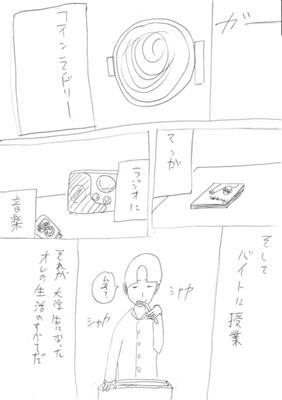 ガー
コインランドリー
マンガ
ラジオに
音楽
そして
バイトに授業
シャカ
シャカ
それが大学生になった
オレの生活のすべてだ